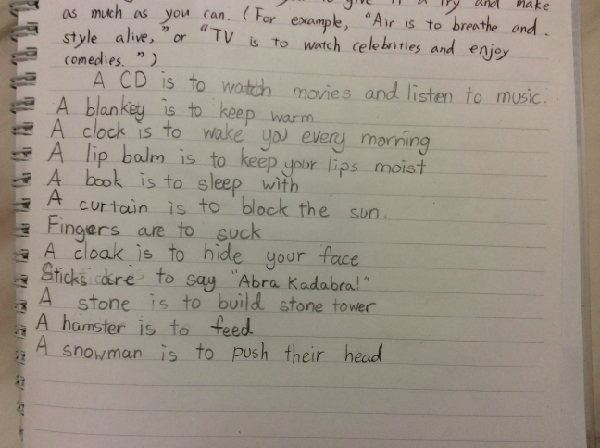 give it a try and make
as much as you can. (For example, "Air is to breathe and
style alive," or "TV is to watch celebrities and enjoy
comedies.")
A CD is to watch movies and listen to music.
A blankey is to keep warm
A clock is to wake you every morning
A lip balm is to keep your lips moist
A book is to sleep with
A curtain is to block the sun.
Fingers are to suck
A cloak is to hide your face
Sticks are to say "Abra Kadabra!"
A stone is to build stone tower
A hamster is to feed
A snowman is to push their head